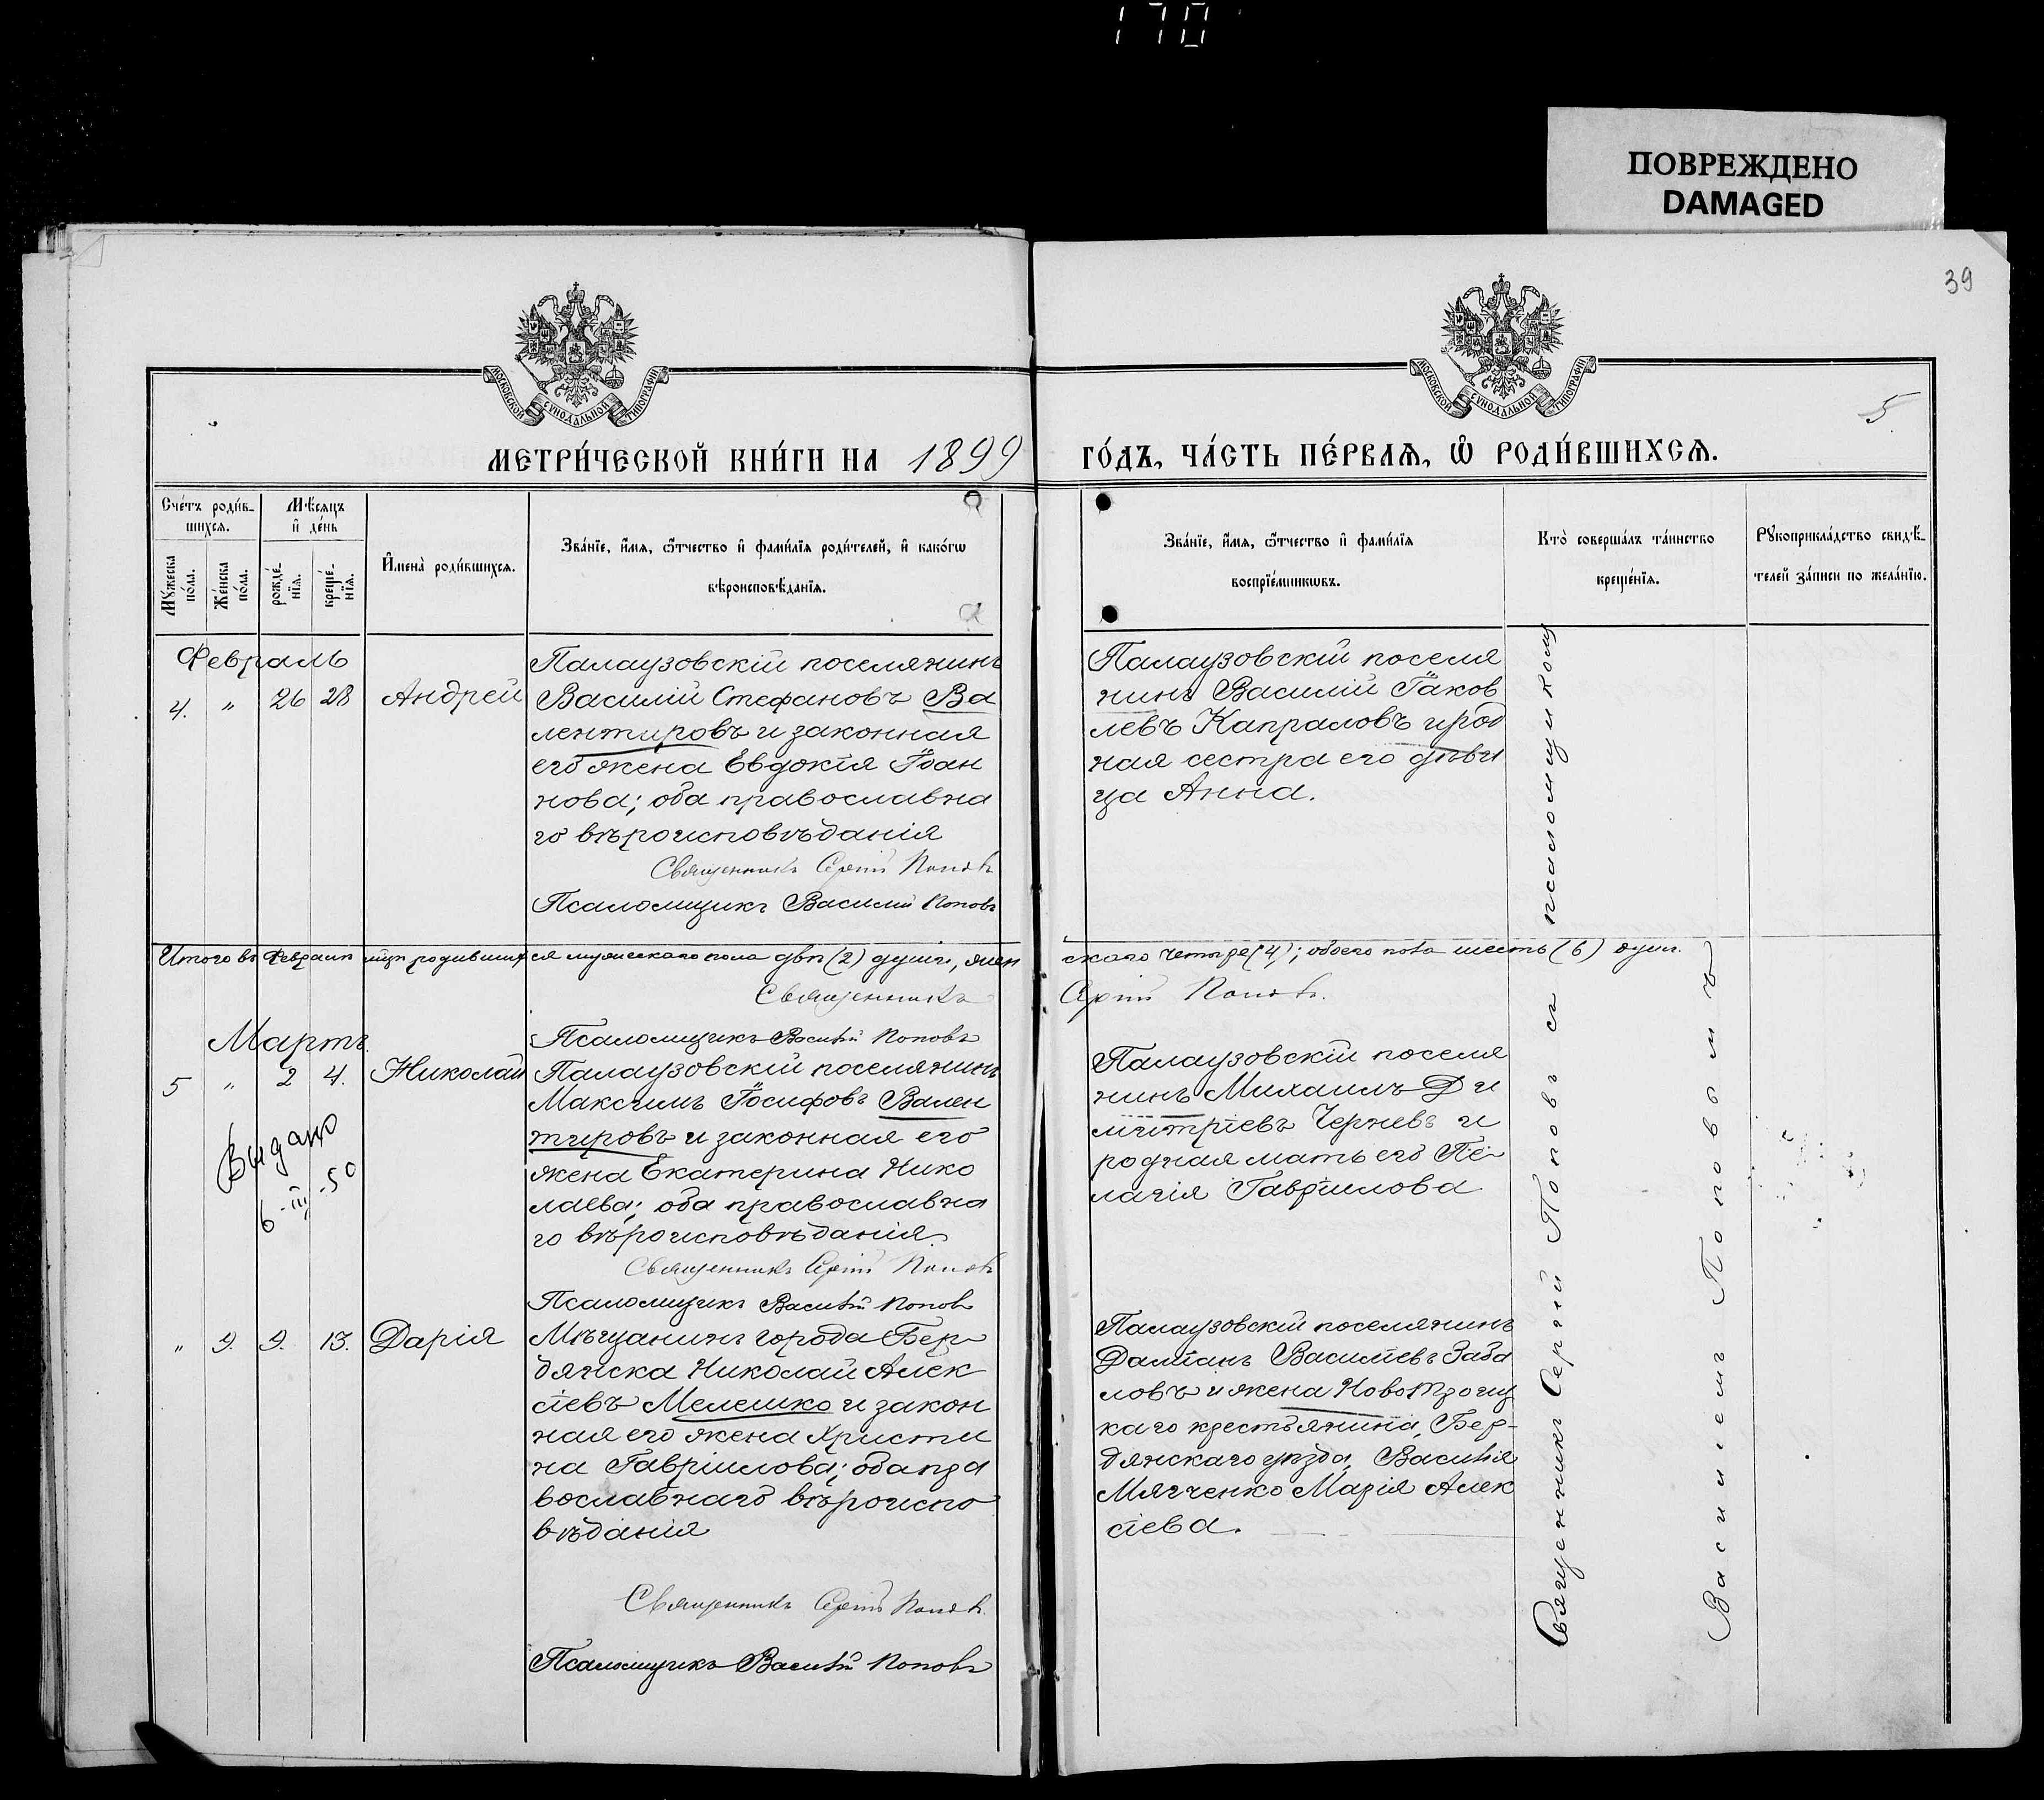 170
ПОВРЕЖДЕНО
DAMAGED
39
МОСКОВСКОЙ СѴНОДАЛЬНОЙ ТИПОГРАФІИ
МОСКОВСКОЙ СѴНОДАЛЬНОЙ ТИПОГРАФІИ
5
МЕТРИ́ЧЕСКОЙ КНИ́ГИ НА 1899
ГО́ДЪ, ЧА́СТЬ ПЕ́РВАѦ, Ѡ҆ РОДИ́ВШИХСѦ.
Сче́тъ роди́в-
шихсѧ.
Мꙋ́жеска по́ла.
Же́нска по́ла.
Мѣ́сѧцъ
и҆ де́нь
рожде́-нїѧ.
креще́-нїѧ.
И҆мена̀ роди́вшихсѧ.
Зва́нїе, и҆́мѧ, ѻ҆́тчество и҆ фами́лїѧ роди́телей, и҆ како́гѡ
вѣроисповѣ́данїѧ.
Зва́нїе, и҆́мѧ, ѻ҆́тчество и҆ фами́лїѧ
воспрїе́мникѡвъ.
Кто̀ соверша́лъ та́инство
креще́нїѧ.
Рꙋкоприкла́дство свидѣ́-
телей за́писи по жела́нїю.
Февраль
4. " 26 28 Андрей
Палаузовскій поселянинъ
Василій Стефановъ Ва
лентировъ и законная
его жена Евдокія Іоан
нова; оба православна
го вѣроисповѣданія
Священникъ Сергій Поповъ
Псаломщикъ Василій Поповъ
Палаузовскій поселя
нинъ Василій Іаков
левъ Капраловъ и род
ная сестра его дѣви
ца Анна.
Итого въ Февралѣ мцѣ родившихся мужескаго пола двѣ (2) души, жен
скаго четыре (4); обоего пола шесть (6) душъ.
Священникъ
Сергій Поповъ.
Псаломщикъ Василій Поповъ
Мартъ.
5 " 2 4. Николай
Выдано
6-III-50
Палаузовскій поселянинъ
Максимъ Іосифовъ Вален
тировъ и законная его
жена Екатерина Нико
лаева; оба православна
го вѣроисповѣданія.
Священникъ Сергій Поповъ
Псаломщикъ Василій Поповъ
Палаузовскій поселя
нинъ Михаилъ Ди
митріевъ Чернев и
родная мать его Пе-
лагія Гавріилова
" 9. 9. 13. Дарія
Мѣщанинъ города Бер-
дянска Николай Алек
сіевъ Мелешко и закон
ная его жена Христи
на Гавріилова; оба пра
вославнаго вѣроиспо
вѣданія
Священникъ Сергій Поповъ.
Псаломщикъ Василій Поповъ
Палаузовскій поселянинъ
Даміанъ Василіевъ Заба
ловъ и жена Новотроиц
каго крестьянина, Бер-
дянскаго уѣзда, Василія
Мягченко Марія Алек
сіева.
Священникъ Сергій Поповъ съ псаломщикомъ
Василіемъ Поповымъ